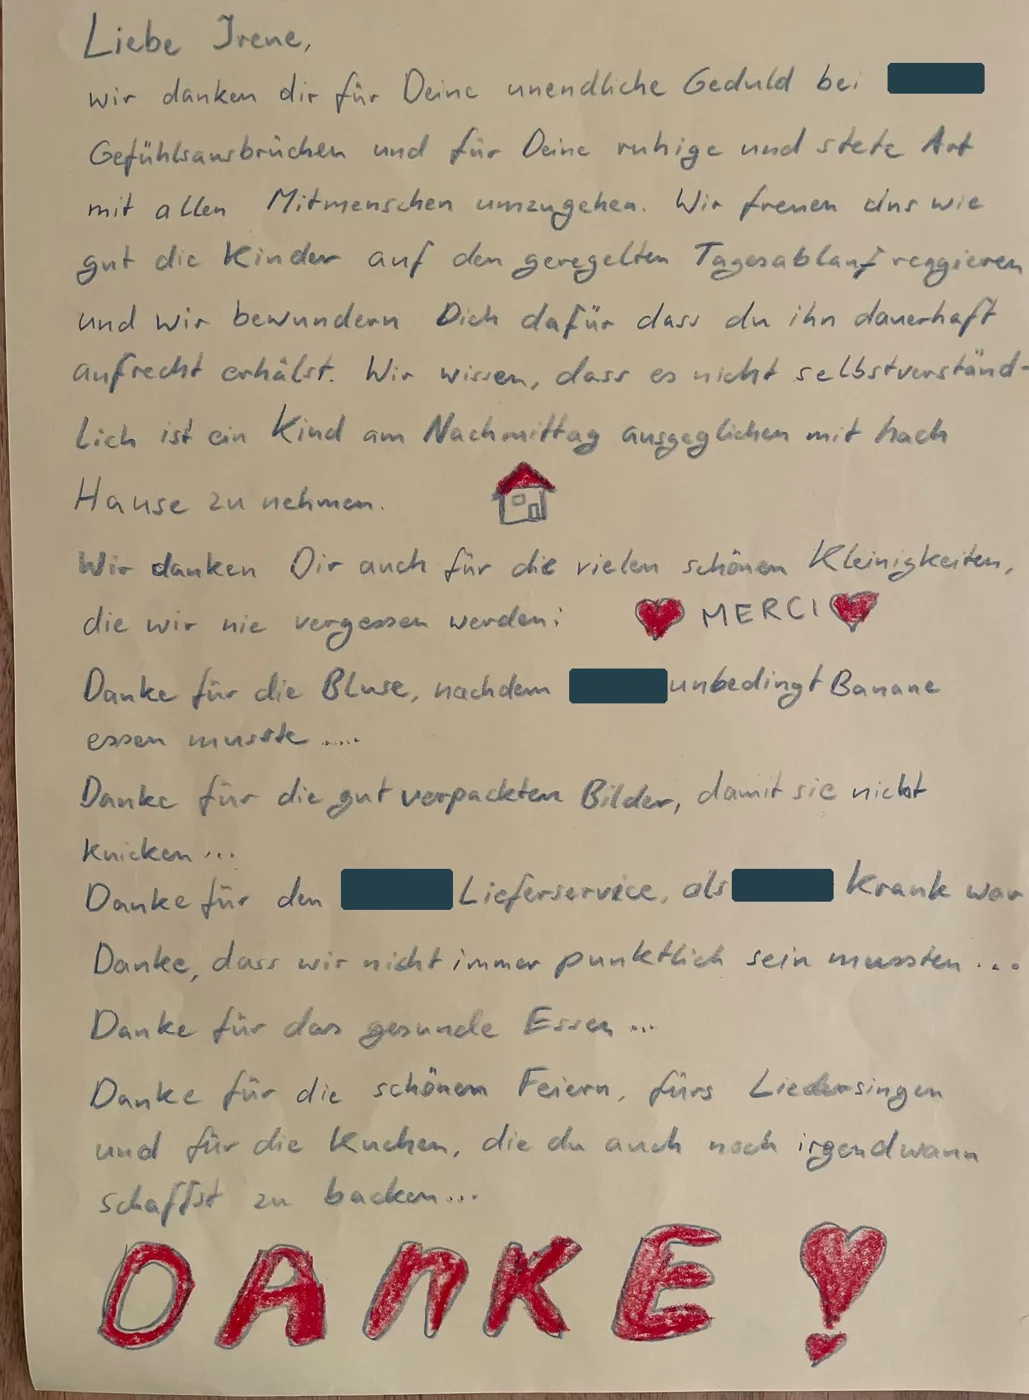 Liebe Irene,
wir danken dir für Deine unendliche Geduld bei
Gefühlsausbrüchen und für Deine ruhige und stete Art
mit allen Mitmenschen umzugehen. Wir freuen uns wie
gut die Kinder auf den geregelten Tagesablauf reggieren
und wir bewundern Dich dafür dass du ihn dauerhaft
aufrecht erhälst. Wir wissen, dass es nicht selbstverständ-
lich ist ein Kind am Nachmittag ausgeglichen mit nach
Hause zu nehmen.
Wir danken Dir auch für die vielen schönen Kleinigkeiten,
die wir nie vergessen werden: MERCI
Danke für die Bluse, nachdem unbedingt Banane
essen musste .....
Danke für die gut verpackten Bilder, damit sie nicht
knicken ...
Danke für den Lieferservice, als krank war
Danke, dass wir nicht immer punktlich sein mussten ...
Danke für das gesunde Essen ...
Danke für die schönen Feiern, fürs Liedersingen
und für die Kuchen, die du auch noch irgendwann
schaffst zu backen...
DANKE!